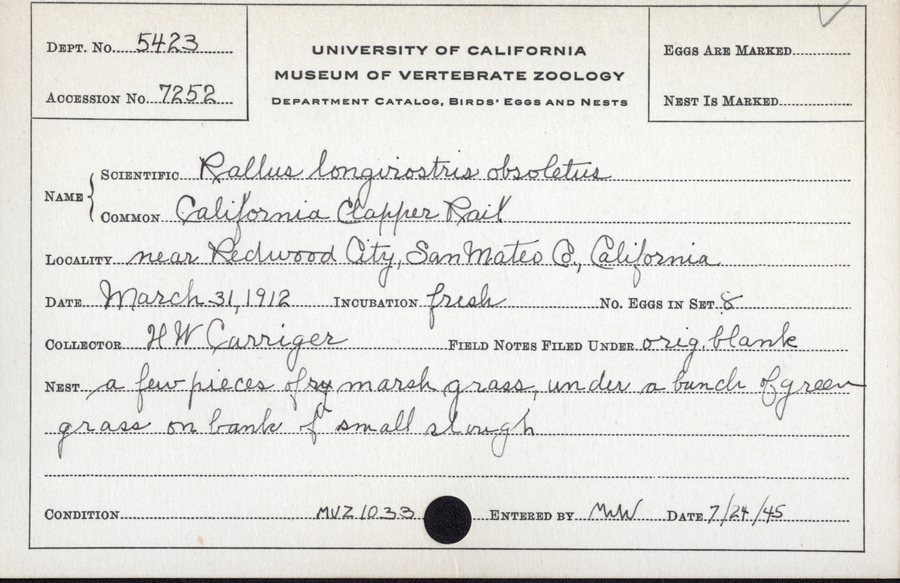 DEPT. NO. 5423
UNIVERSITY OF CALIFORNIA
MUSEUM OF VERTEBRATE ZOOLOGY
DEPARTMENT CATALOG, BIRDS' EGGS AND NESTS
EGGS ARE MARKED
ACCESSION NO. 7252
NEST IS MARKED
NAME
SCIENTIFIC Rallus longirostris obsoletus
COMMON California Clapper Rail
LOCALITY near Redwood City, San Mateo Co., California
DATE March 31, 1912 INCUBATION fresh NO. EGGS IN SET 8
COLLECTOR H W Carriger FIELD NOTES FILED UNDER orig. blank
NEST a few pieces of marsh grass, under a bunch of green
grass on bank of small slough
CONDITION MVZ 1033 ENTERED BY MW DATE 7/24/45